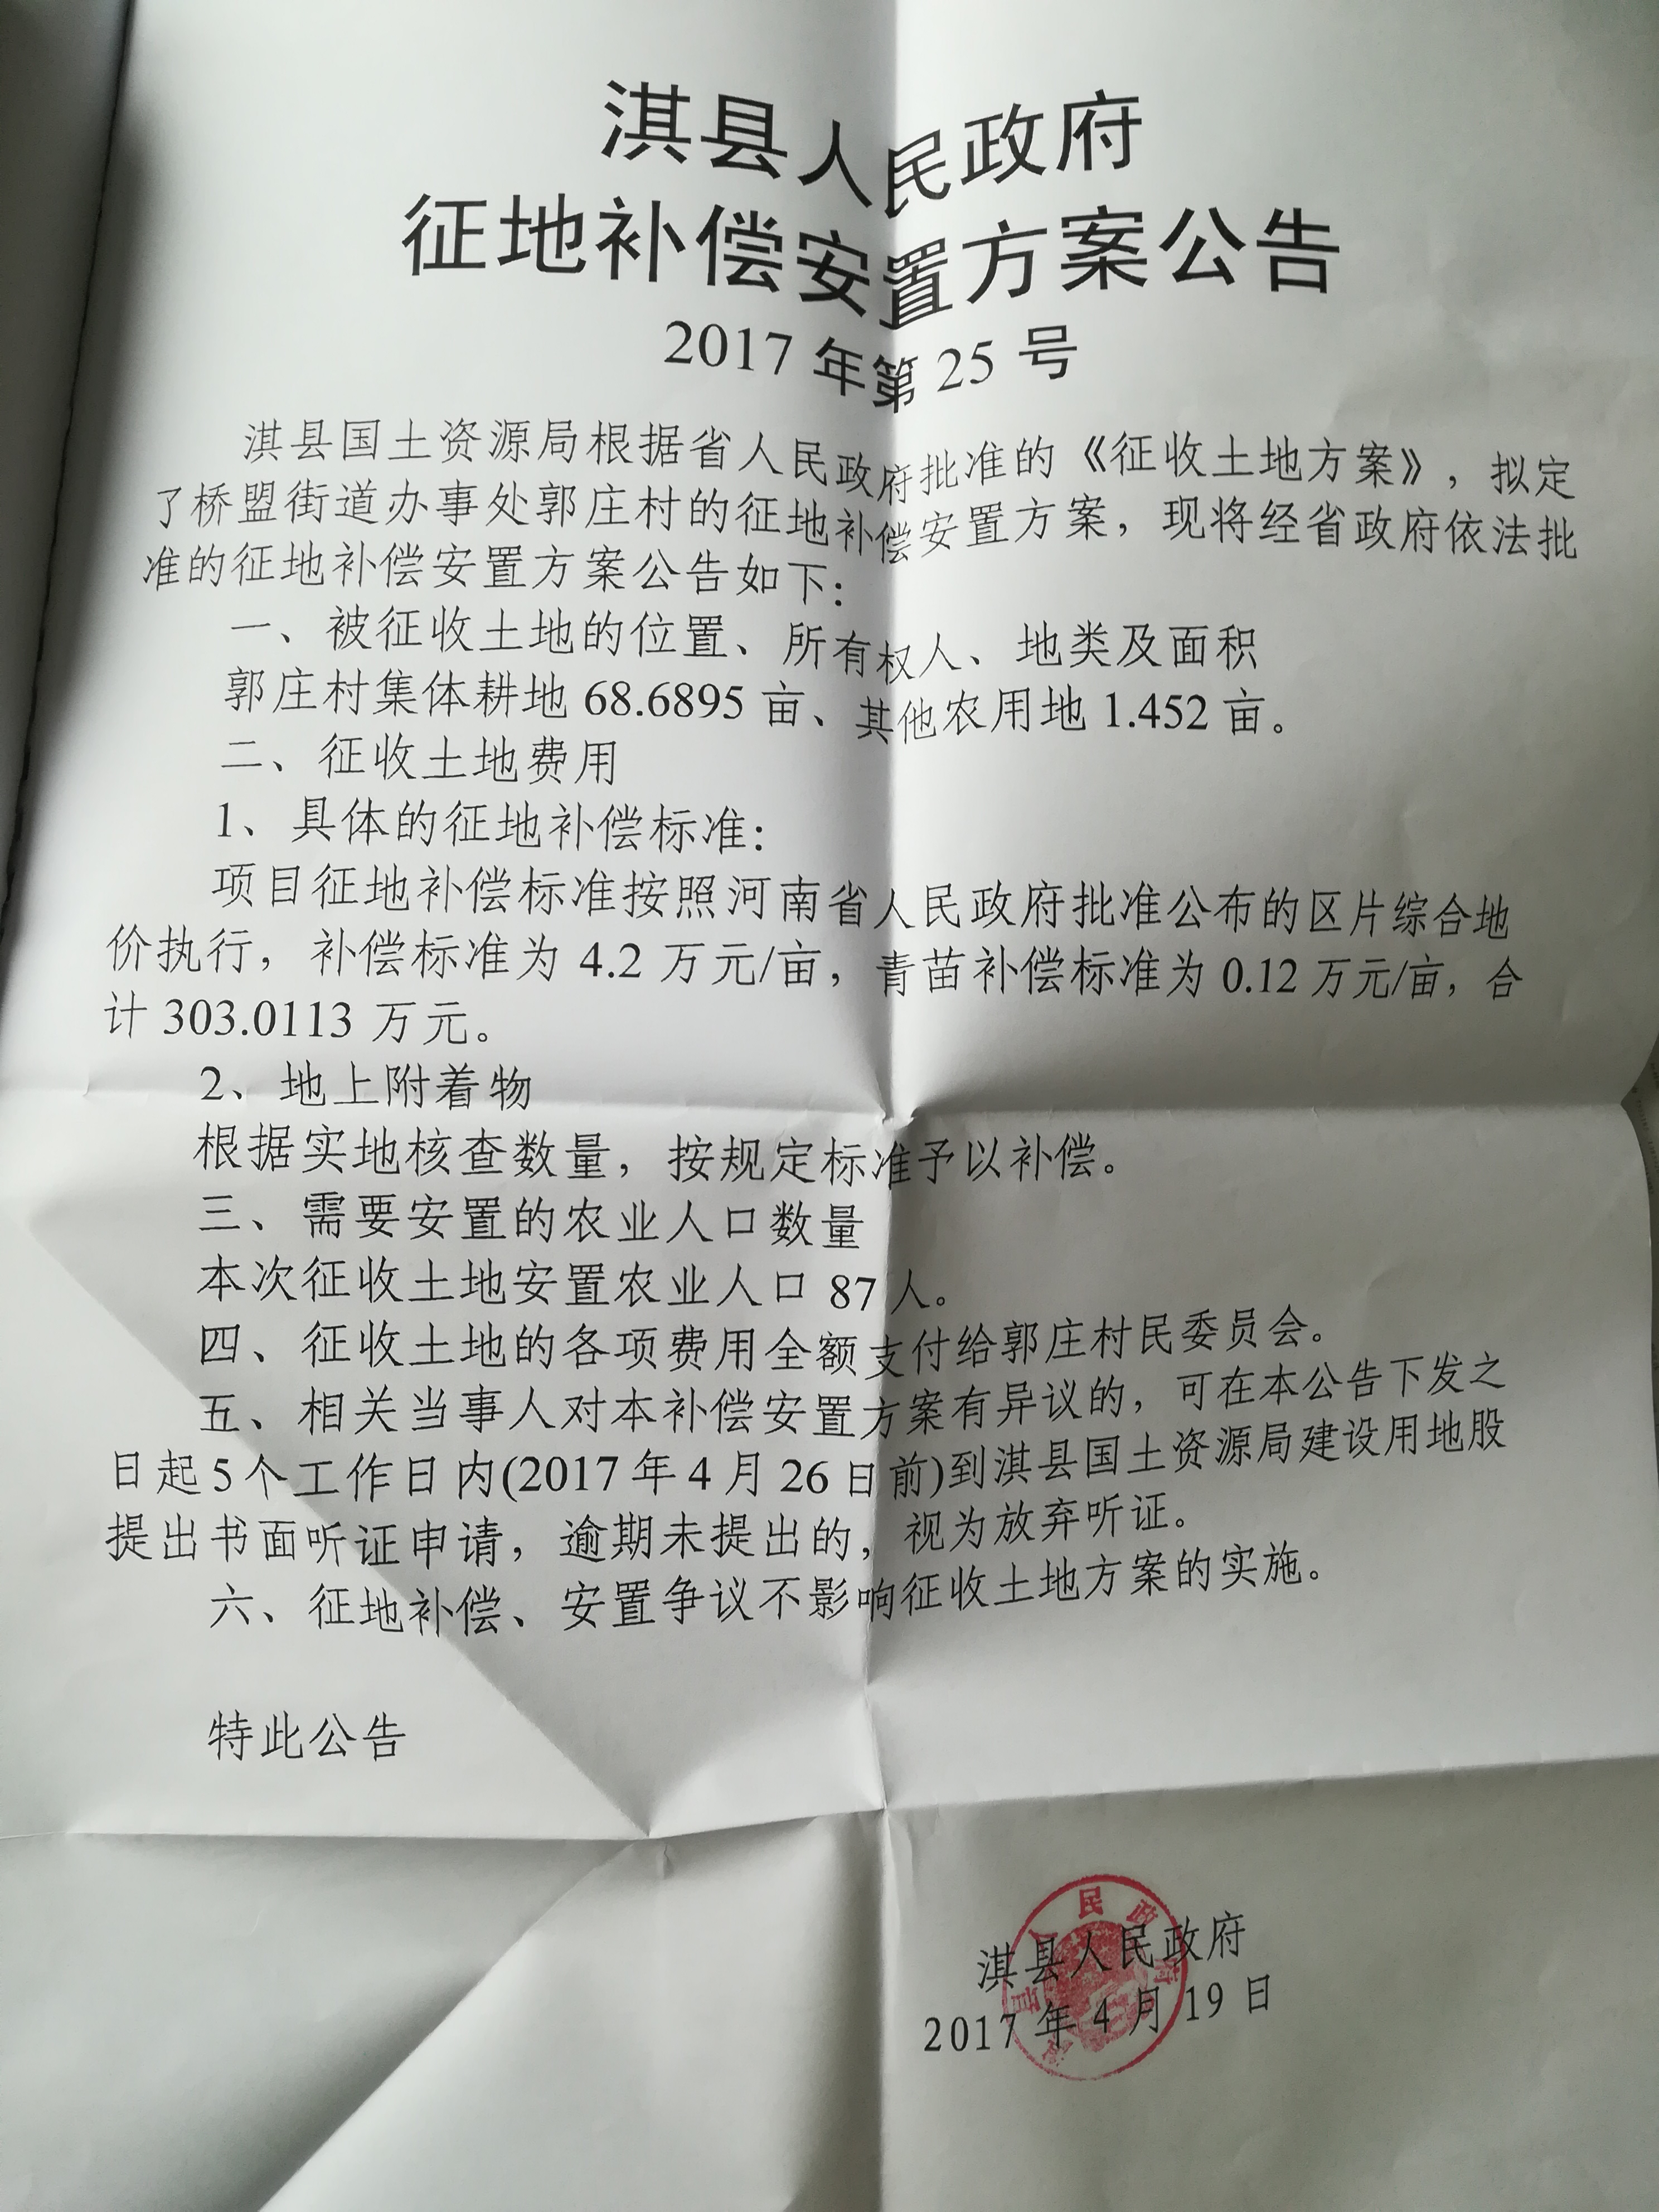 淇县人民政府
征地补偿安置方案公告
2017 年第 25 号
淇县国土资源局根据省人民政府批准的《征收土地方案》，拟定
了桥盟街道办事处郭庄村的征地补偿安置方案，现将经省政府依法批
准的征地补偿安置方案公告如下：
一、被征收土地的位置、所有权人、地类及面积
郭庄村集体耕地 68.6895 亩、其他农用地 1.452 亩。
二、征收土地费用
1、具体的征地补偿标准：
项目征地补偿标准按照河南省人民政府批准公布的区片综合地
价执行，补偿标准为 4.2 万元/亩，青苗补偿标准为 0.12 万元/亩，合
计 303.0113 万元。
2、地上附着物
根据实地核查数量，按规定标准予以补偿。
三、需要安置的农业人口数量
本次征收土地安置农业人口 87 人。
四、征收土地的各项费用全额支付给郭庄村民委员会。
五、相关当事人对本补偿安置方案有异议的，可在本公告下发之
日起 5 个工作日内(2017 年 4 月 26 日前)到淇县国土资源局建设用地股
提出书面听证申请，逾期未提出的，视为放弃听证。
六、征地补偿、安置争议不影响征收土地方案的实施。
特此公告
淇县人民政府
2017 年 4 月 19 日